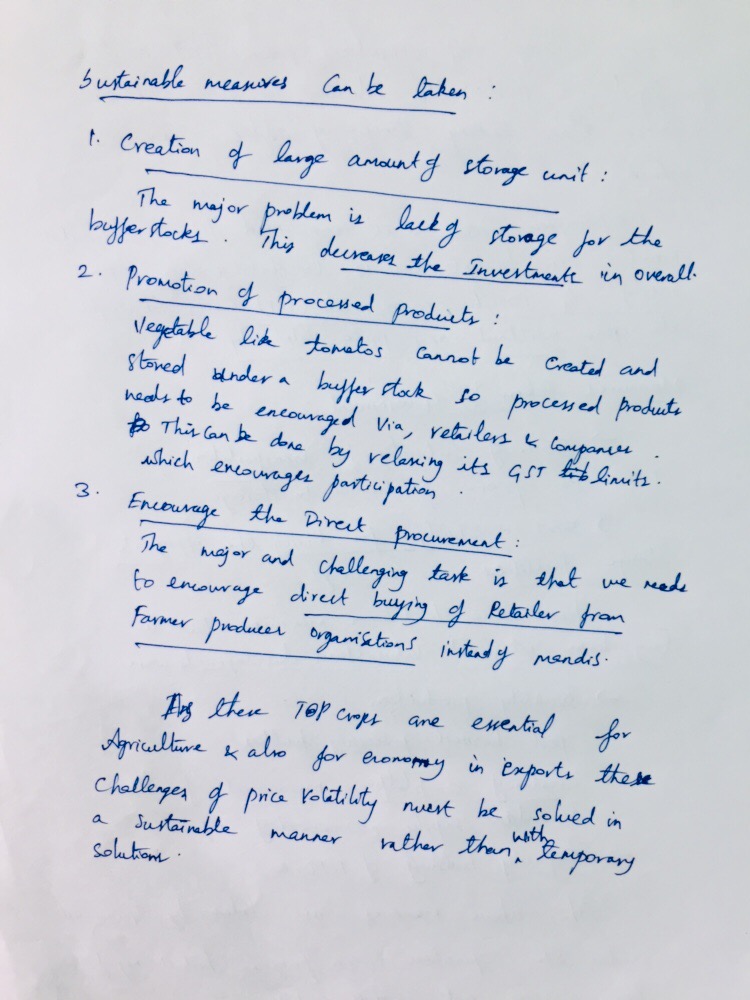 Sustainable measures Can be taken :
1. Creation of large amount of storage unit :
The major problem is lack of storage for the
buffer stocks. This decreases the Investments in overall.
2. Promotion of processed products :
Vegetable like tomatos cannot be created and
stored under a buffer stock so processed products
needs to be encouraged Via, retailers & Companies.
This can be done by relaxing its GST limits.
which encourages participation.
3. Encourage the Direct procurement :
The major and challenging task is that we needs
to encourage direct buying of Retailer from
Farmer producer organisations instead of mandis.
As these TOP crops are essential for
Agriculture & also for economy in exports these
challenges of price volatility must be solved in
a sustainable manner rather than with temporary
solutions.